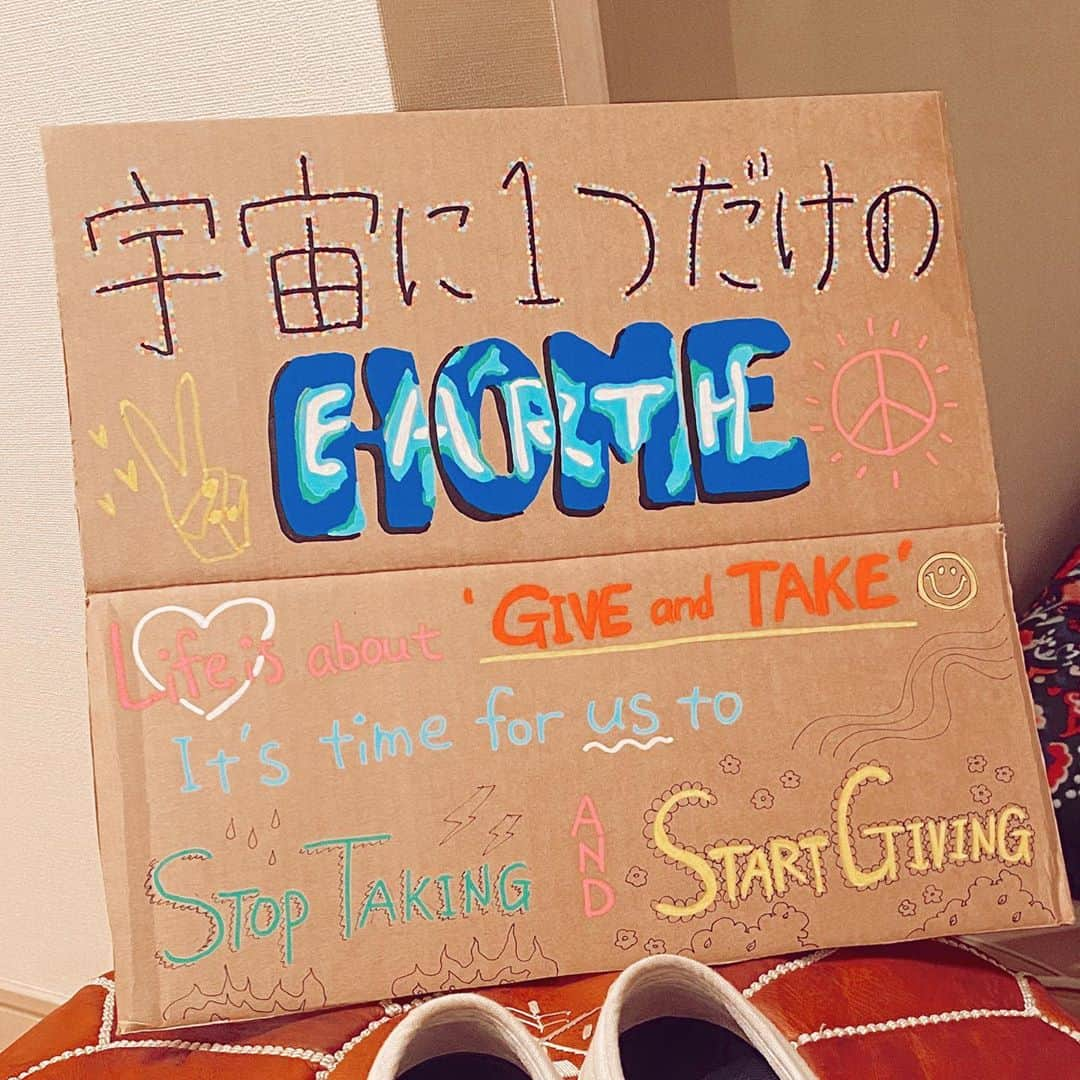 宇宙に1つだけの
HOME
EARTH
Life is about 'GIVE and TAKE'
It's time for us to
STOP TAKING AND START GIVING